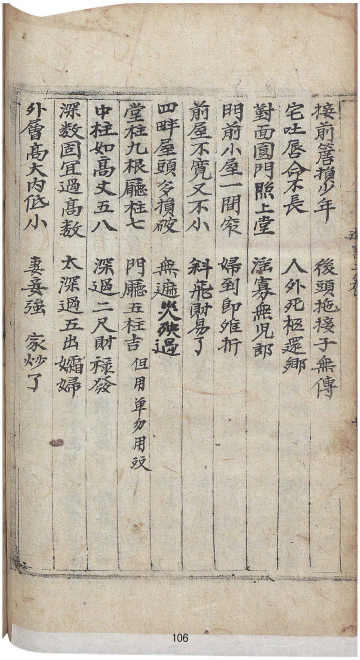 接前簷損少年 後頭拖棧子無傳
宅吐唇令不長 人外死柩還鄉
對面圓門照上堂 滛寡無児郎
門前小屋一間窄 婦到即雉折
前屋不寬又不小 斜飛財易了
四畔屋頭多損破 無遮災殃遇
堂柱九根廳柱七 門廳五柱吉 但用单勿用双
中柱如高丈五八 深過二尺財祿發
深数固宜過高数 太深過五出孀婦
外層高大内低小 妻妾強 家炒了
106